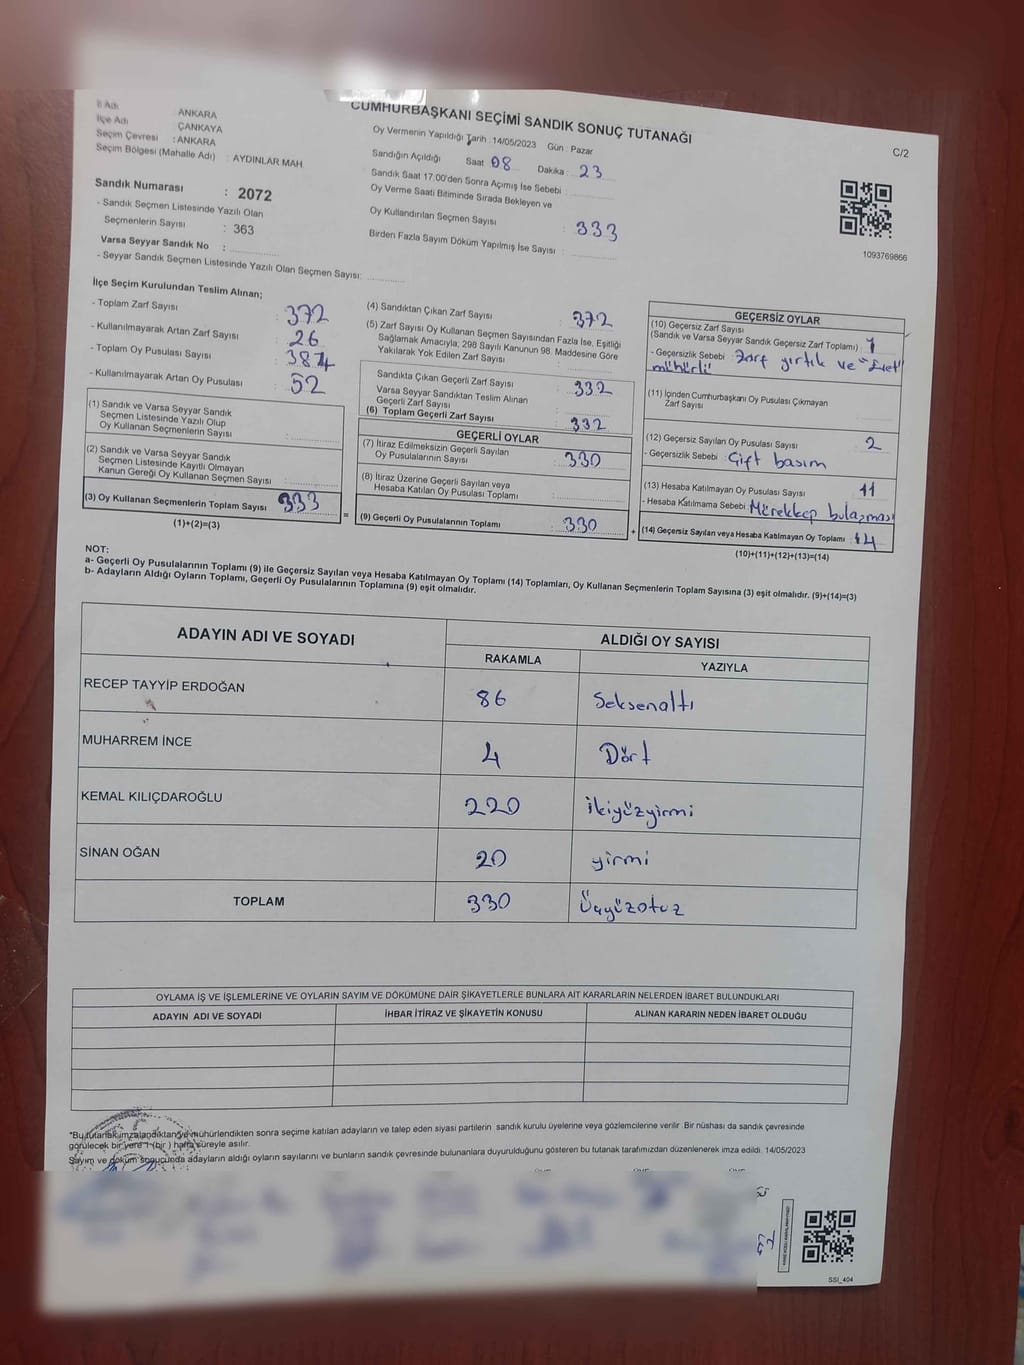 CUMHURBAŞKANI SEÇİMİ SANDIK SONUÇ TUTANAĞI
C/2
İl Adı : ANKARA
İlçe Adı : ÇANKAYA
Seçim Çevresi : ANKARA
Seçim Bölgesi (Mahalle Adı) : AYDINLAR MAH.
Oy Vermenin Yapıldığı Tarih : 14/05/2023 Gün : Pazar
Sandığın Açıldığı Saat 08 Dakika : 23
Sandık Saat 17:00'den Sonra Açımış İse Sebebi :
Oy Verme Saati Bitiminde Sırada Bekleyen ve
Oy Kullandırılan Seçmen Sayısı : 333
Birden Fazla Sayım Döküm Yapılmış İse Sayısı :
1093769866
Sandık Numarası : 2072
- Sandık Seçmen Listesinde Yazılı Olan
Seçmenlerin Sayısı : 363
Varsa Seyyar Sandık No :
- Seyyar Sandık Seçmen Listesinde Yazılı Olan Seçmen Sayısı:
İlçe Seçim Kurulundan Teslim Alınan;
- Toplam Zarf Sayısı : 372
- Kullanılmayarak Artan Zarf Sayısı : 26
- Toplam Oy Pusulası Sayısı : 384
- Kullanılmayarak Artan Oy Pusulası : 52
(1) Sandık ve Varsa Seyyar Sandık
Seçmen Listesinde Yazılı Olup
Oy Kullanan Seçmenlerin Sayısı :
(2) Sandık ve Varsa Seyyar Sandık
Seçmen Listesinde Kayıtlı Olmayan
Kanun Gereği Oy Kullanan Seçmen Sayısı :
(3) Oy Kullanan Seçmenlerin Toplam Sayısı : 333
(1)+(2)=(3)
(4) Sandıktan Çıkan Zarf Sayısı : 372
(5) Zarf Sayısı Oy Kullanan Seçmen Sayısından Fazla İse, Eşitliği
Sağlamak Amacıyla; 298 Sayılı Kanunun 98. Maddesine Göre
Yakılarak Yok Edilen Zarf Sayısı :
Sandıkta Çıkan Geçerli Zarf Sayısı : 332
Varsa Seyyar Sandıktan Teslim Alınan
Geçerli Zarf Sayısı :
(6) Toplam Geçerli Zarf Sayısı : 332
GEÇERLİ OYLAR
(7) İtiraz Edilmeksizin Geçerli Sayılan
Oy Pusulalarının Sayısı : 330
(8) İtiraz Üzerine Geçerli Sayılan veya
Hesaba Katılan Oy Pusulası Toplamı :
= (9) Geçerli Oy Pusulalarının Toplamı : 330
GEÇERSİZ OYLAR
(10) Geçersiz Zarf Sayısı
(Sandık ve Varsa Seyyar Sandık Geçersiz Zarf Toplamı) : 1
- Geçersizlik Sebebi : Zarf yırtık ve "Evet"
mühürlü
(11) İçinden Cumhurbaşkanı Oy Pusulası Çıkmayan
Zarf Sayısı :
(12) Geçersiz Sayılan Oy Pusulası Sayısı : 2
- Geçersizlik Sebebi : Çift basım
(13) Hesaba Katılmayan Oy Pusulası Sayısı : 11
- Hesaba Katılmama Sebebi : Mürekkep bulaşması
+ (14) Geçersiz Sayılan veya Hesaba Katılmayan Oy Toplamı : 14
(10)+(11)+(12)+(13)=(14)
NOT:
a- Geçerli Oy Pusulalarının Toplamı (9) ile Geçersiz Sayılan veya Hesaba Katılmayan Oy Toplamı (14) Toplamları, Oy Kullanan Seçmenlerin Toplam Sayısına (3) eşit olmalıdır. (9)+(14)=(3)
b- Adayların Aldığı Oyların Toplamı, Geçerli Oy Pusulalarının Toplamına (9) eşit olmalıdır.
ADAYIN ADI VE SOYADI
ALDIĞI OY SAYISI
RAKAMLA YAZIYLA
RECEP TAYYİP ERDOĞAN 86 Seksenaltı
MUHARREM İNCE 4 Dört
KEMAL KILIÇDAROĞLU 220 ikiyüzyirmi
SİNAN OĞAN 20 yirmi
TOPLAM 330 Üçyüzotuz
OYLAMA İŞ VE İŞLEMLERİNE VE OYLARIN SAYIM VE DÖKÜMÜNE DAİR ŞİKAYETLERLE BUNLARA AİT KARARLARIN NELERDEN İBARET BULUNDUKLARI
ADAYIN ADI VE SOYADI İHBAR İTİRAZ VE ŞİKAYETİN KONUSU ALINAN KARARIN NEDEN İBARET OLDUĞU
*Bu tutanak imzalandıktan ve mühürlendikten sonra seçime katılan adayların ve talep eden siyasi partilerin sandık kurulu üyelerine veya gözlemcilerine verilir. Bir nüshası da sandık çevresinde
görülecek bir yere 1 (bir) hafta süreyle asılır.
Sayım ve döküm sonucunda adayların aldığı oyların sayılarını ve bunların sandık çevresinde bulunanlara duyurulduğunu gösteren bu tutanak tarafımızdan düzenlenerek imza edildi. 14/05/2023
SSİ_404